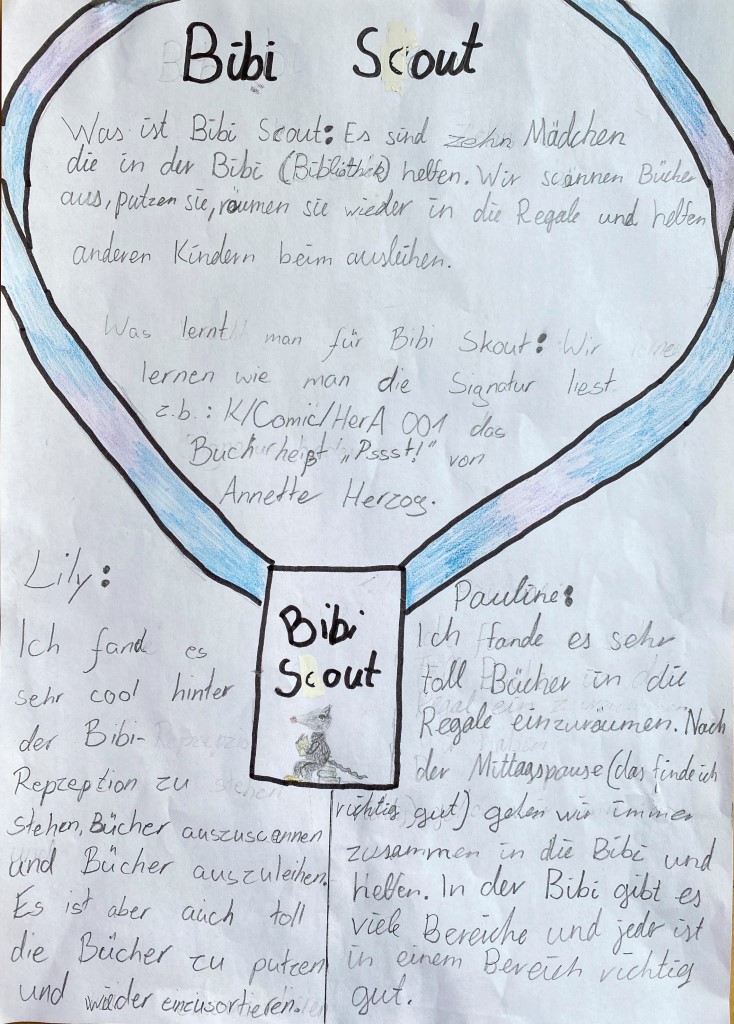 Bibi Scout
Was ist Bibi Scout: Es sind zehn Mädchen
die in der Bibi (Bibliothek) helfen. Wir scannen Bücher
aus, putzen sie, räumen sie wieder in die Regale und helfen
anderen Kindern beim ausleihen.
Was lernt man für Bibi Skout: Wir
lernen wie man die Signatur liest
z.b.: K/Comic/HerA 001 das
Buch heißt „Pssst!" von
Annette Herzog.
Bibi
Scout
Lily:
Ich fand es
sehr cool hinter
der Bibi-
Repzeption zu
stehen, Bücher auszuscannen
und Bücher auszuleihen.
Es ist aber auch toll
die Bücher zu putzen
und wieder einzusortieren.
Pauline:
Ich fande es sehr
toll Bücher in die
Regale einzuräumen. Nach
der Mittagspause (das finde ich
richtig gut) gehen wir immer
zusammen in die Bibi und
helfen. In der Bibi gibt es
viele Bereiche und jeder ist
in einem Bereich richtig
gut.